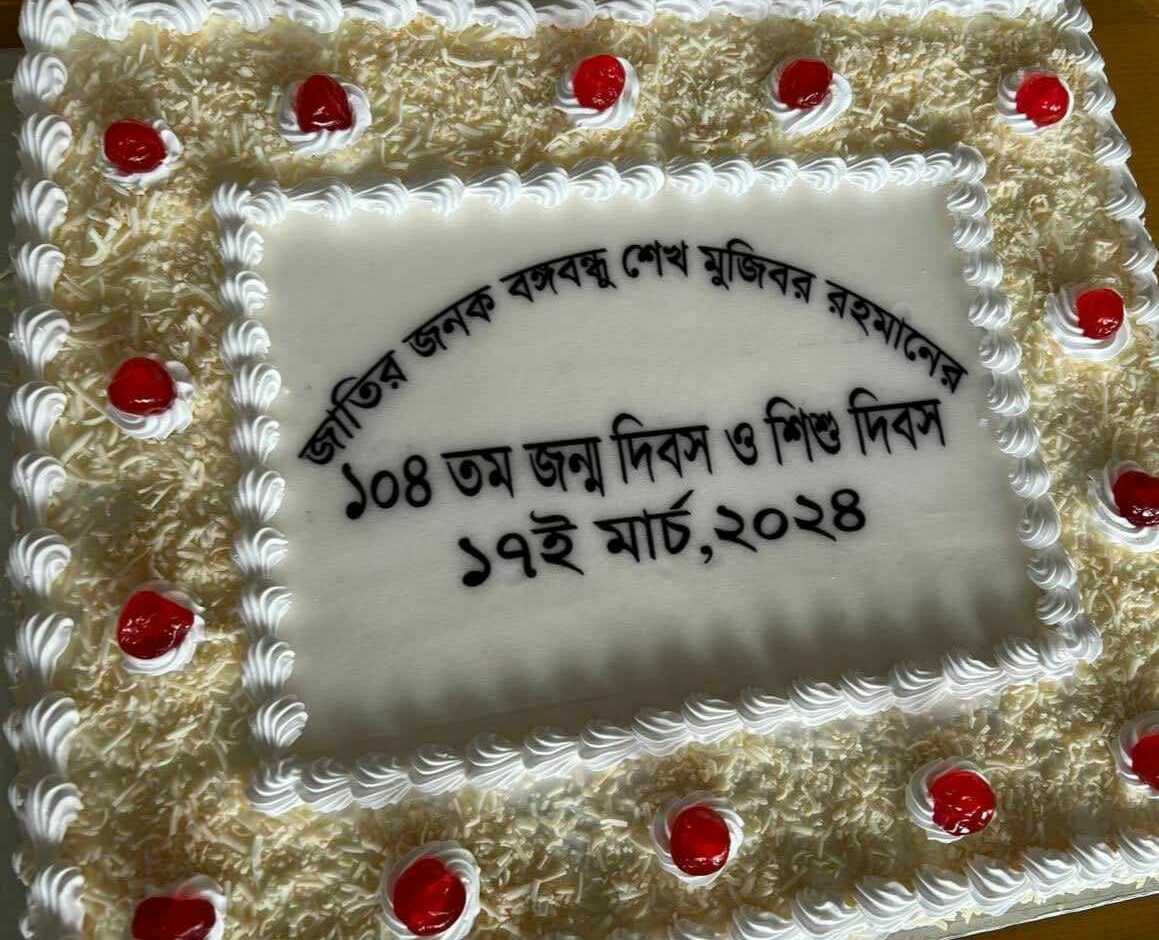 জাতির জনক বঙ্গবন্ধু শেখ মুজিবর রহমানের
১০৪ তম জন্ম দিবস ও শিশু দিবস
১৭ই মার্চ,২০২৪